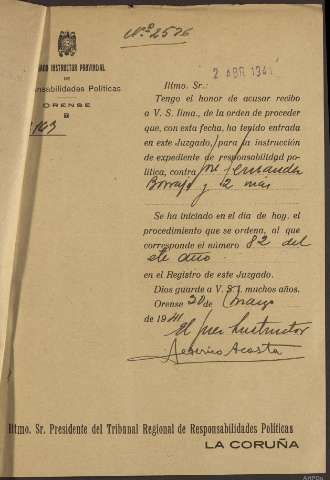 Nº 2576
2 ABR 194
INSTRUCTOR PROVINCIAL
DE
Responsabilidades Políticas
ORENSE
Iltmo. Sr.:
Tengo el honor de acusar recibo
a V. S. Ilma., de la orden de proceder
que, con esta fecha, ha tenido entrada
en este Juzgado, para la instrucción
de expediente de responsabilidad po-
lítica, contra José Fernandez
Borrajo y 12 mas
Se ha iniciado en el día de hoy, el
procedimiento que se ordena, al que
corresponde el número 82 del
este año
en el Registro de este Juzgado.
Dios guarde a V. S. I. muchos años.
Orense 20 de Marzo
de 1941
El Juez Instructor
Federico Acosta
Iltmo. Sr. Presidente del Tribunal Regional de Responsabilidades Políticas
LA CORUÑA